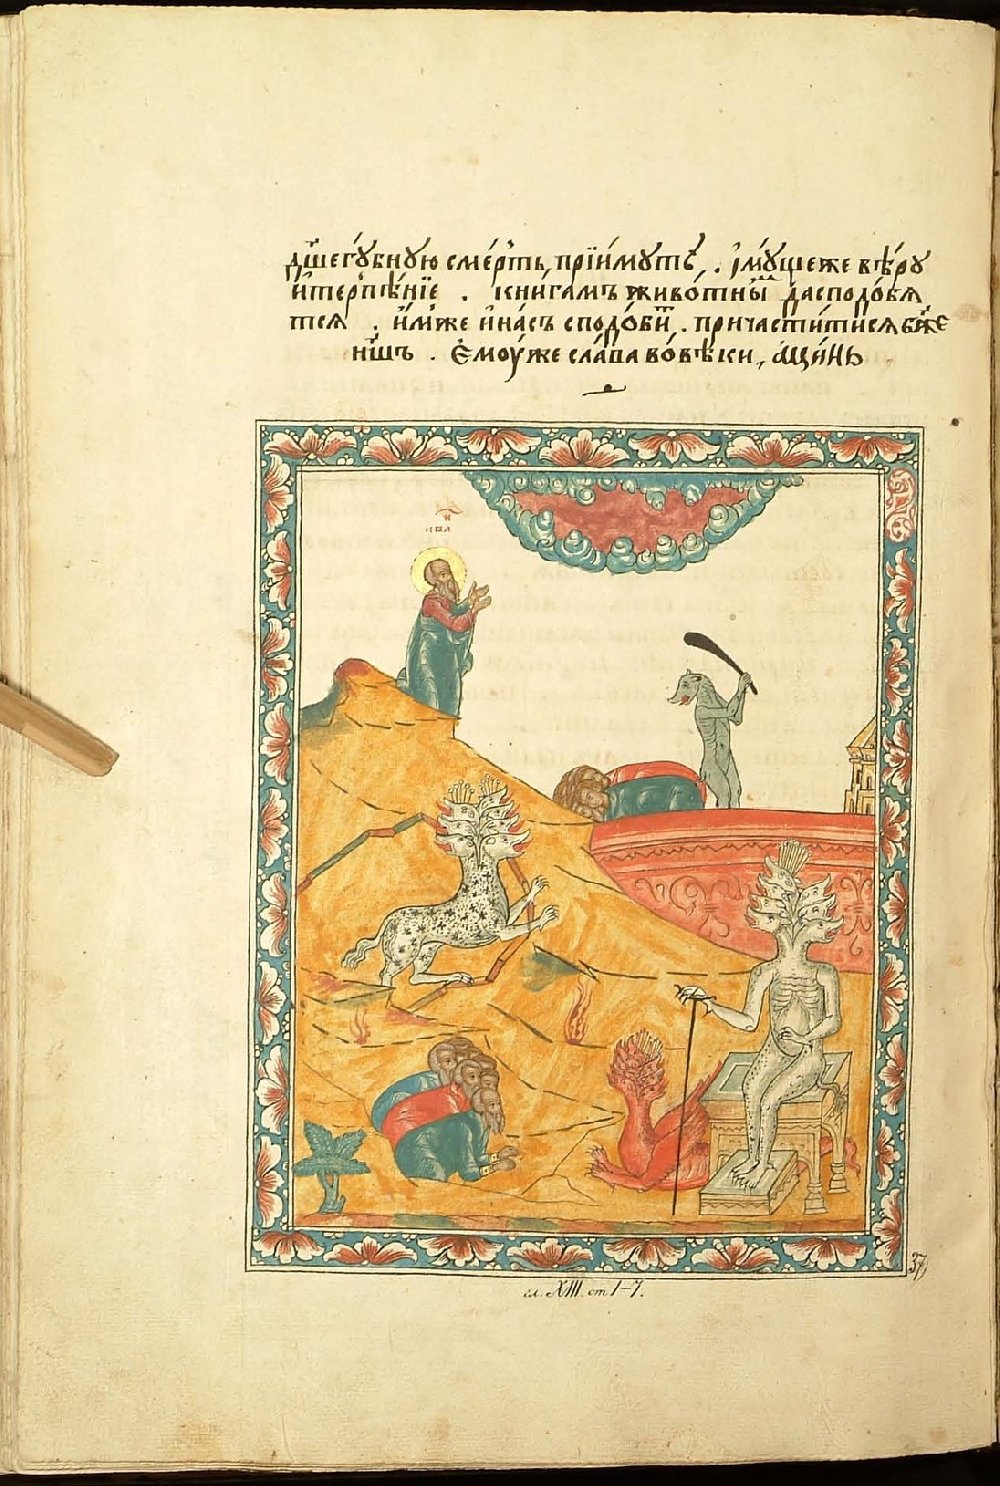 дш҃егу́бную сме́рть, прїи́мутъ . і҆му́щеже вѣ́ру
и҆терпѣ́нїе . кни́гамъ живо́тны̑м да сподо́бя
тся . и҆́мже и҆на́съ сподо́би . причасти́тися бж҃е
Е҆моу́же сла́ва во́вѣки, а҆ми́нь
гл. XIII. ст 1–7.
37